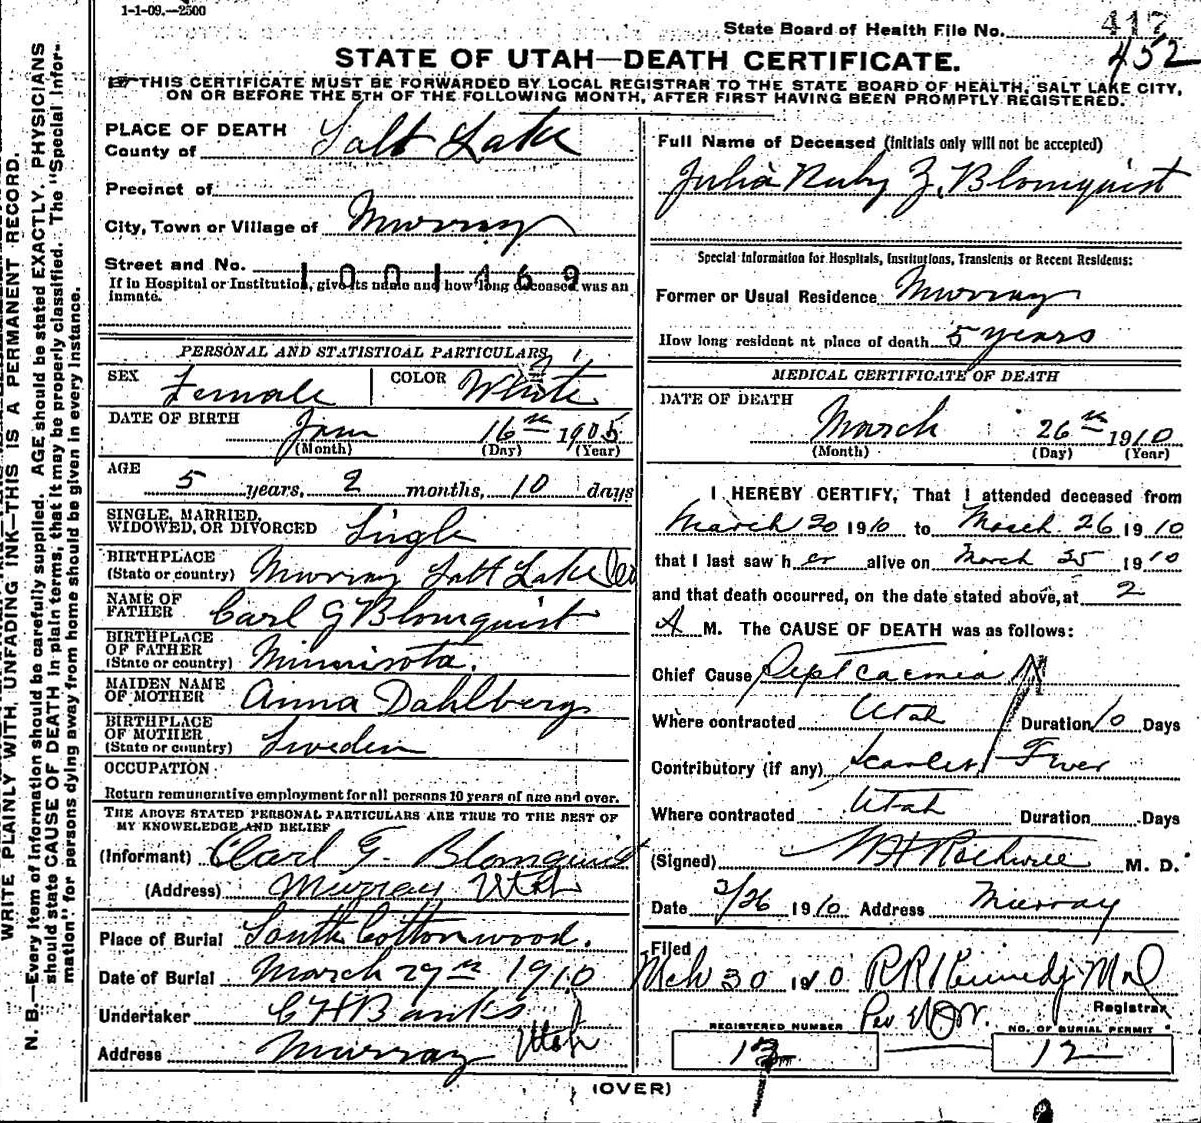 1-1-09.—2500
State Board of Health File No. 417
452
STATE OF UTAH—DEATH CERTIFICATE.
THIS CERTIFICATE MUST BE FORWARDED BY LOCAL REGISTRAR TO THE STATE BOARD OF HEALTH, SALT LAKE CITY,
ON OR BEFORE THE 5TH OF THE FOLLOWING MONTH, AFTER FIRST HAVING BEEN PROMPTLY REGISTERED.
WRITE PLAINLY WITH UNFADING INK—THIS IS A PERMANENT RECORD.
N. B.—Every item of information should be carefully supplied. AGE should be stated EXACTLY. PHYSICIANS
should state CAUSE OF DEATH in plain terms, that it may be properly classified. The "Special Infor-
mation" for persons dying away from home should be given in every instance.
PLACE OF DEATH
County of Salt Lake
Precinct of
City, Town or Village of Murray
Street and No.
1001469
If in Hospital or Institution, give its name and how long deceased was an
inmate.
PERSONAL AND STATISTICAL PARTICULARS
SEX Female COLOR White
DATE OF BIRTH Jan 16th 1905
(Month) (Day) (Year)
AGE
5 years, 2 months, 10 days
SINGLE, MARRIED,
WIDOWED, OR DIVORCED Single
BIRTHPLACE
(State or country) Murray Salt Lake Co
NAME OF
FATHER Carl G Blomquist
BIRTHPLACE
OF FATHER
(State or country) Minnisota.
MAIDEN NAME
OF MOTHER Anna Dahlberg
BIRTHPLACE
OF MOTHER
(State or country) Sweden
OCCUPATION
Return remunerative employment for all persons 10 years of age and over.
THE ABOVE STATED PERSONAL PARTICULARS ARE TRUE TO THE BEST OF
MY KNOWLEDGE AND BELIEF
(Informant) Carl G. Blomquist
(Address) Murray Utah
Place of Burial South Cottonwood.
Date of Burial March 29th 1910
Undertaker C H Banks
Address Murray Utah
Full Name of Deceased (initials only will not be accepted)
Julia Ruby Z. Blomquist
Special Information for Hospitals, Institutions, Transients or Recent Residents:
Former or Usual Residence Murray
How long resident at place of death 5 years
MEDICAL CERTIFICATE OF DEATH
DATE OF DEATH
March 26th 1910
(Month) (Day) (Year)
I HEREBY CERTIFY, That I attended deceased from
March 20 1910 to March 26 1910
that I last saw her alive on March 25 1910
and that death occurred, on the date stated above, at 2
A M. The CAUSE OF DEATH was as follows:
Chief Cause Septicaemia
Where contracted Utah Duration 10 Days
Contributory (if any) Scarlet Fever
Where contracted Utah Duration Days
(Signed) W H Rothwell M. D.
Date 3/26 1910 Address Murray
Filed
Mch 30 1910 R R Kennedy M D
Registrar
Per
REGISTERED NUMBER NO. OF BURIAL PERMIT
12
(OVER)